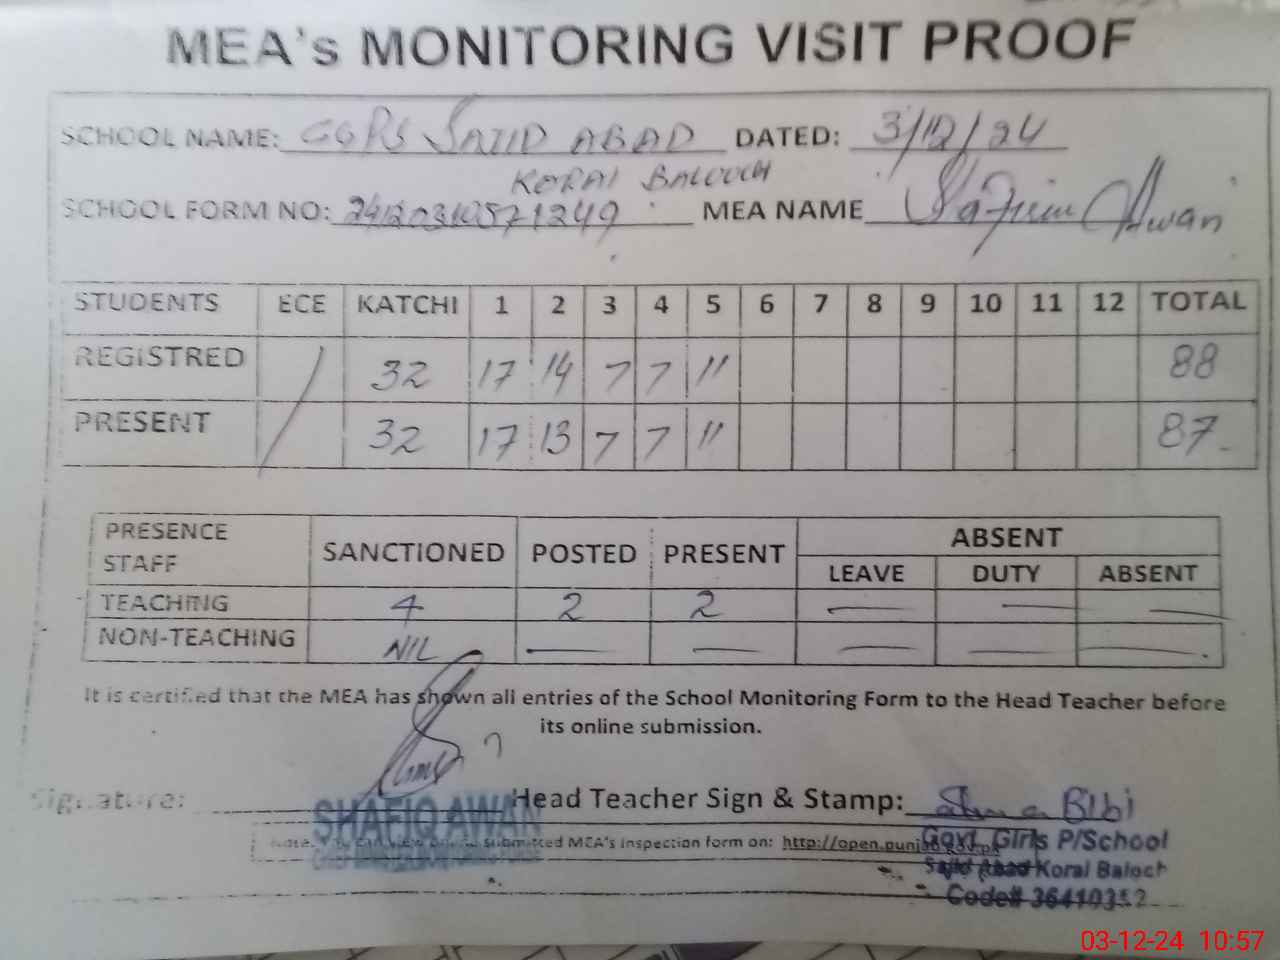 MEA's MONITORING VISIT PROOF
SCHOOL NAME: GGPS SAJID ABAD DATED: 3/12/24
KORAI BALOUCH
SCHOOL FORM NO: MEA NAME Shafiq Awan
STUDENTS ECE KATCHI 1 2 3 4 5 6 7 8 9 10 11 12 TOTAL
REGISTRED 32 17 14 7 7 11 88
PRESENT 32 17 13 7 7 11 87
PRESENCE STAFF SANCTIONED POSTED PRESENT ABSENT
LEAVE DUTY ABSENT
TEACHING 4 2 2 — — —
NON-TEACHING NIL — — — — —
It is certified that the MEA has shown all entries of the School Monitoring Form to the Head Teacher before
its online submission.
Signature: Head Teacher Sign & Stamp: Bibi
SHAFIQ AWAN
Note: You can view online submitted MEA's inspection form on: http://open.punjab.gov.pk
Govt. Girls P/School
Sajid Abad Korai Baloch
Code# 36410352
03-12-24 10:57